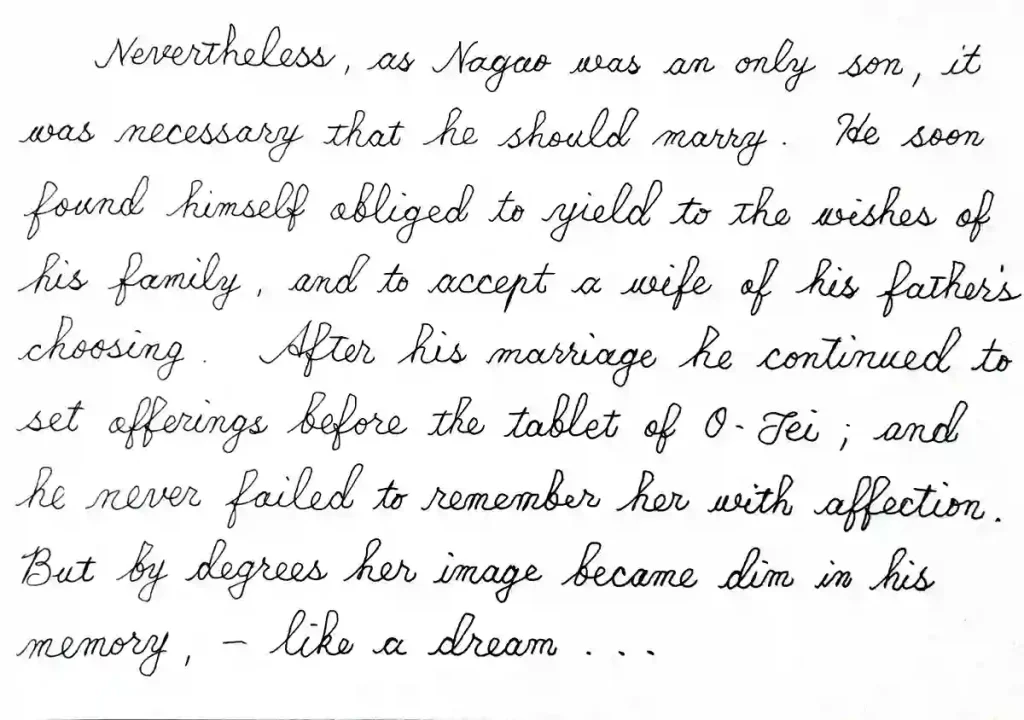 Nevertheless, as Nagao was an only son, it
was necessary that he should marry. He soon
found himself obliged to yield to the wishes of
his family, and to accept a wife of his father's
choosing. After his marriage he continued to
set offerings before the tablet of O-Tei; and
he never failed to remember her with affection.
But by degrees her image became dim in his
memory, – like a dream . . .